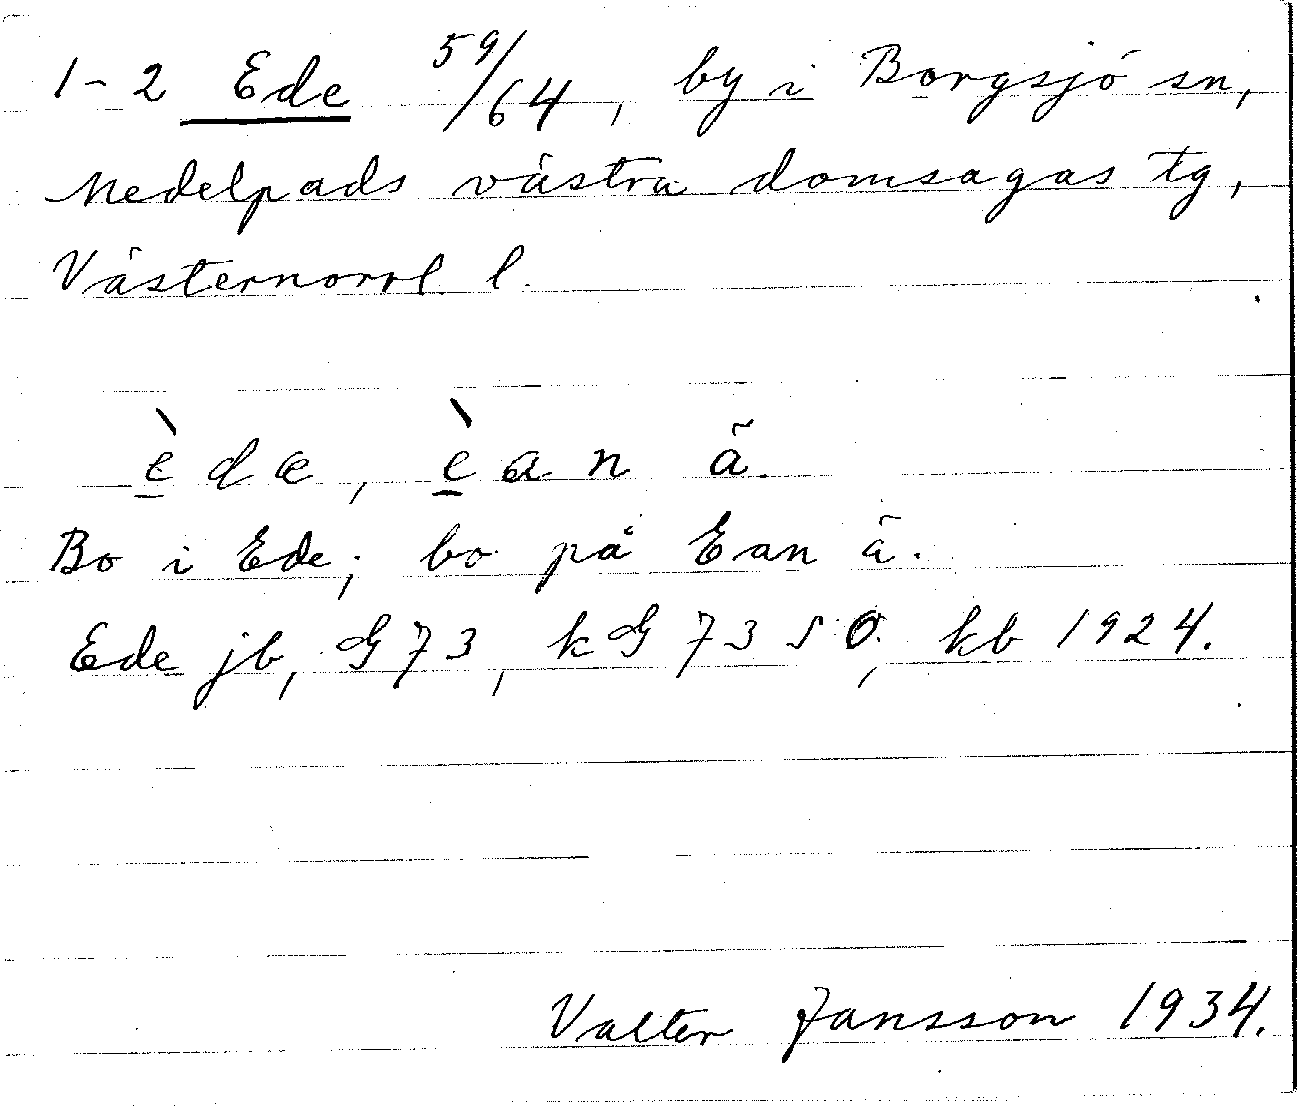 1-2 Ede 59/64, by i Borgsjö sn,
Medelpads västra domsagas tg,
Västernorrl l.
è̱dæ, è̱an ä̃.
Bo i Ede; bo på Ean ä.
Ede jb, G 73, kG 73 SO, kb 1924.
Valter Jansson 1934.